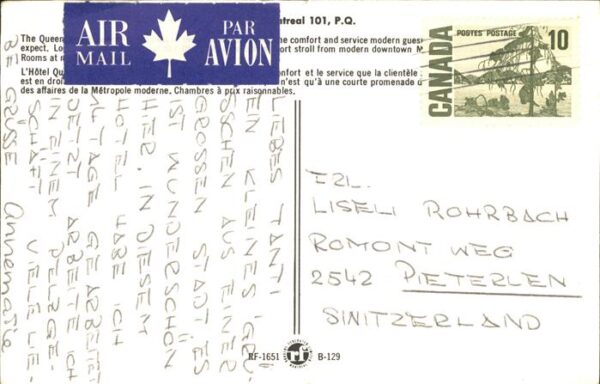 AIR MAIL
PAR AVION
treal 101, P.Q.
The Queen
he comfort and service modern guest
expect. Lo
ort stroll from modern downtown M
Rooms at r
L'Hôtel Qu
nfort et le service que la clientèle
est en droi
n'est qu'à une courte promenade
des affaires de la Métropole moderne. Chambres à prix raisonnables.
CANADA
POSTES POSTAGE
10
LIEBES TANTI
EIN KLEINES GRÜ-
SSCHEN AUS EINER
GROSSEN STADT. ES
IST WUNDERSCHÖN
HIER. IN DIESEM
HOTEL HABE ICH
TAGE GEARBEITET
JETZT ARBEITE ICH
IN EINEM PELZGE-
SCHÄFT. VIELE LIE-
BE GRÜSSE Annemarie
FZL.
LISELI ROHRBACH
ROMONT WEG
2542 PIETERLEN
SWITZERLAND
RF-1651
B-129